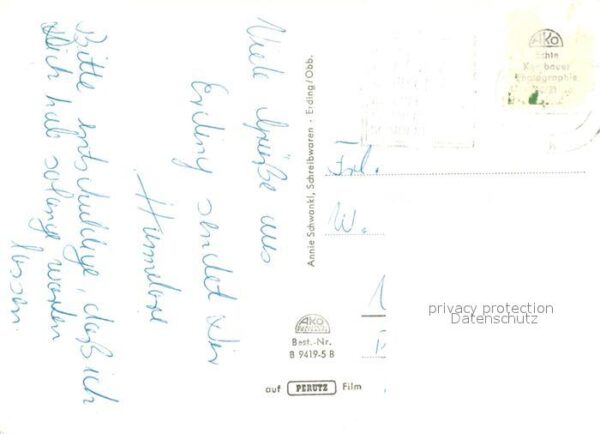 Viele Grüße aus
Erding sendet Dir
Hannelore
Bitte entschuldige, daß ich
Dich hab solange warten
lassen.
Annie Schwankl, Schreibwaren · Erding/Obb.
AKO
Echte
photographie
Frl.
W.
privacy protection
Datenschutz
AKO
Best.-Nr.
B 9419-5 B
auf PERUTZ Film